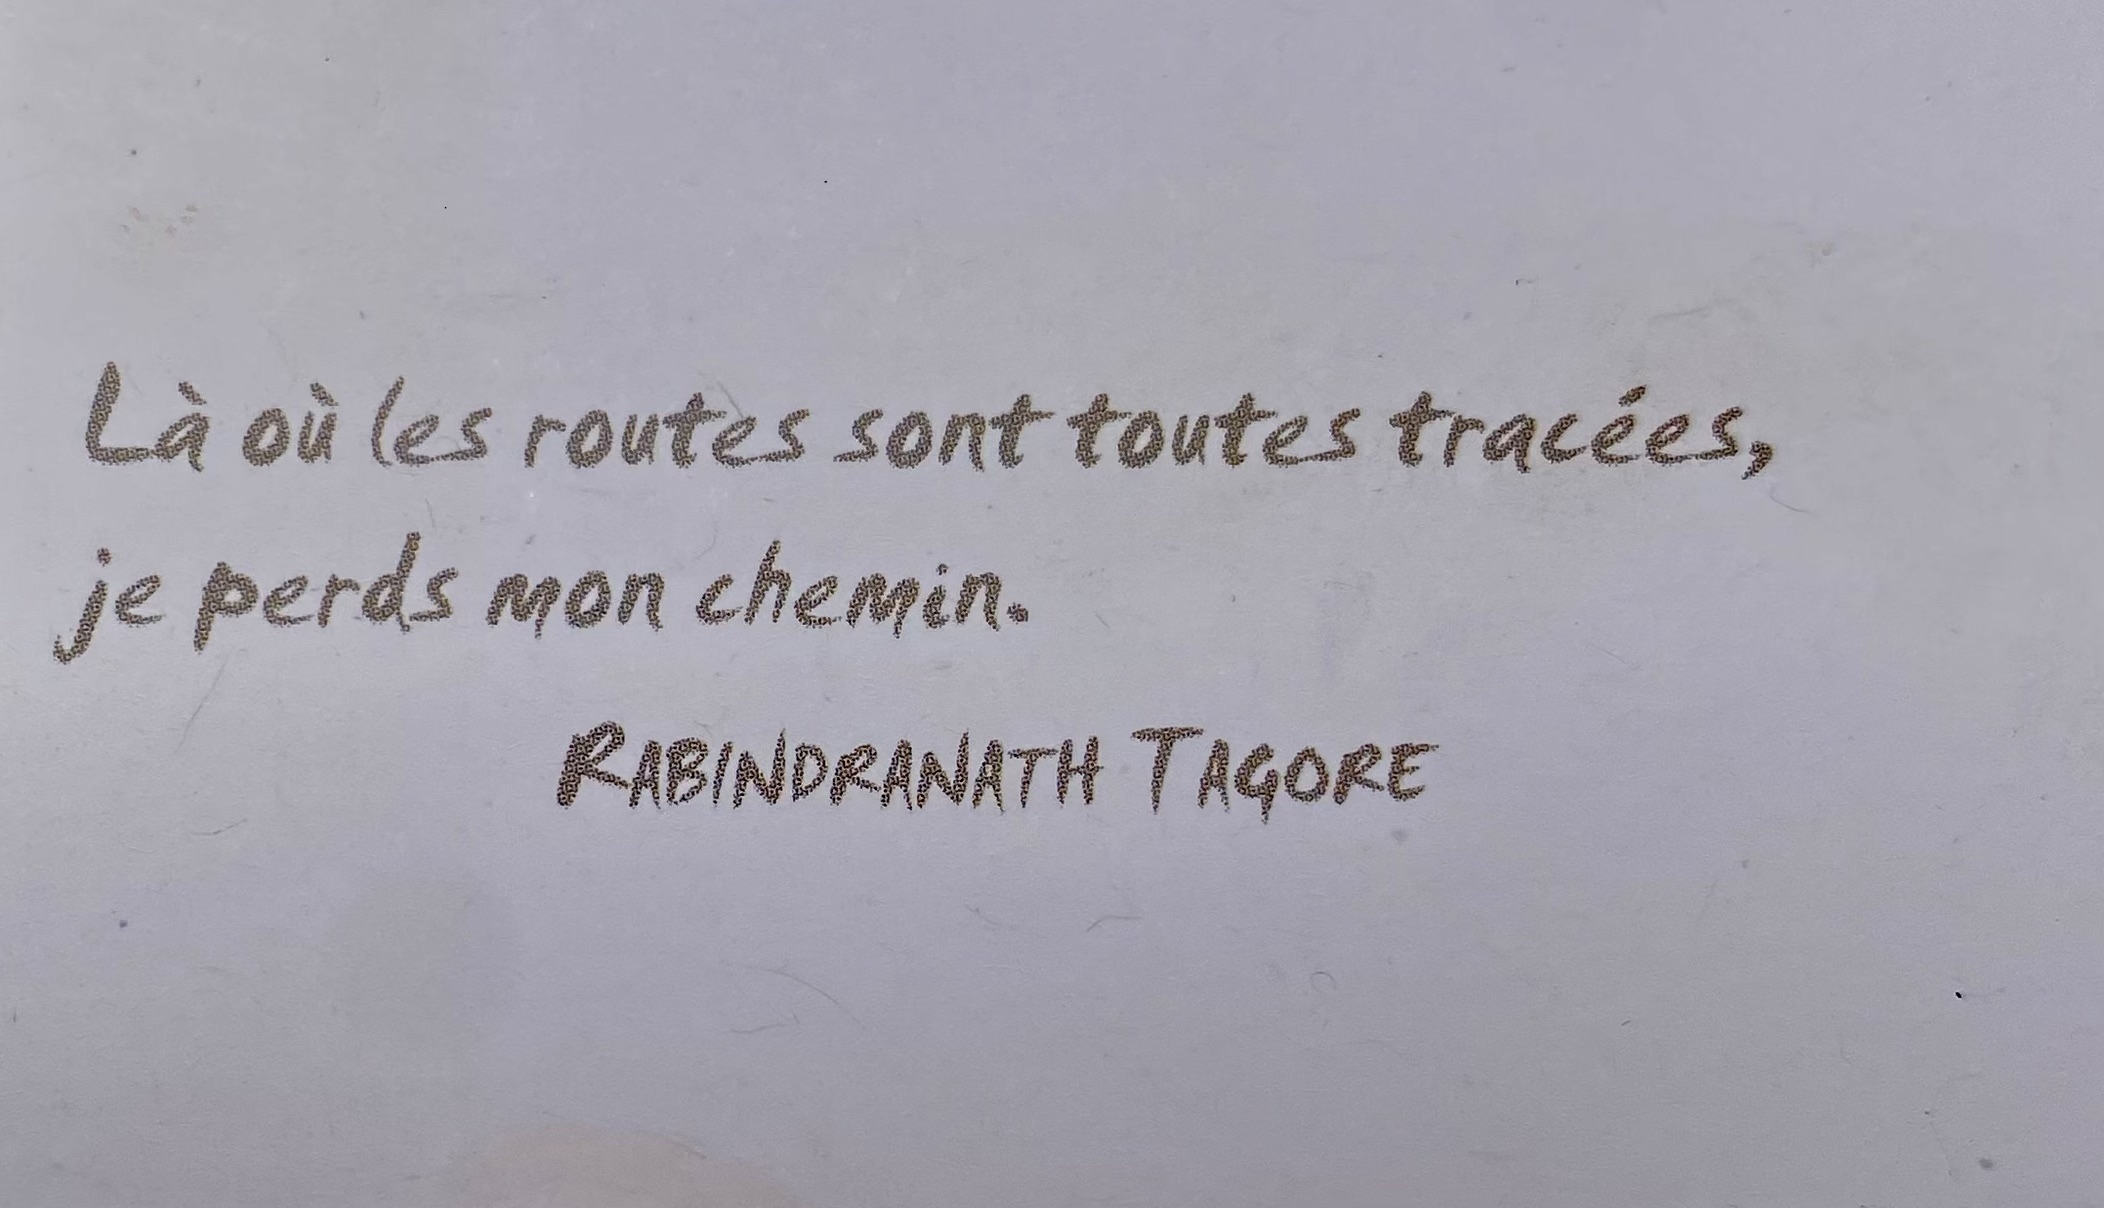 Là où les routes sont toutes tracées,
je perds mon chemin.
RABINDRANATH TAGORE